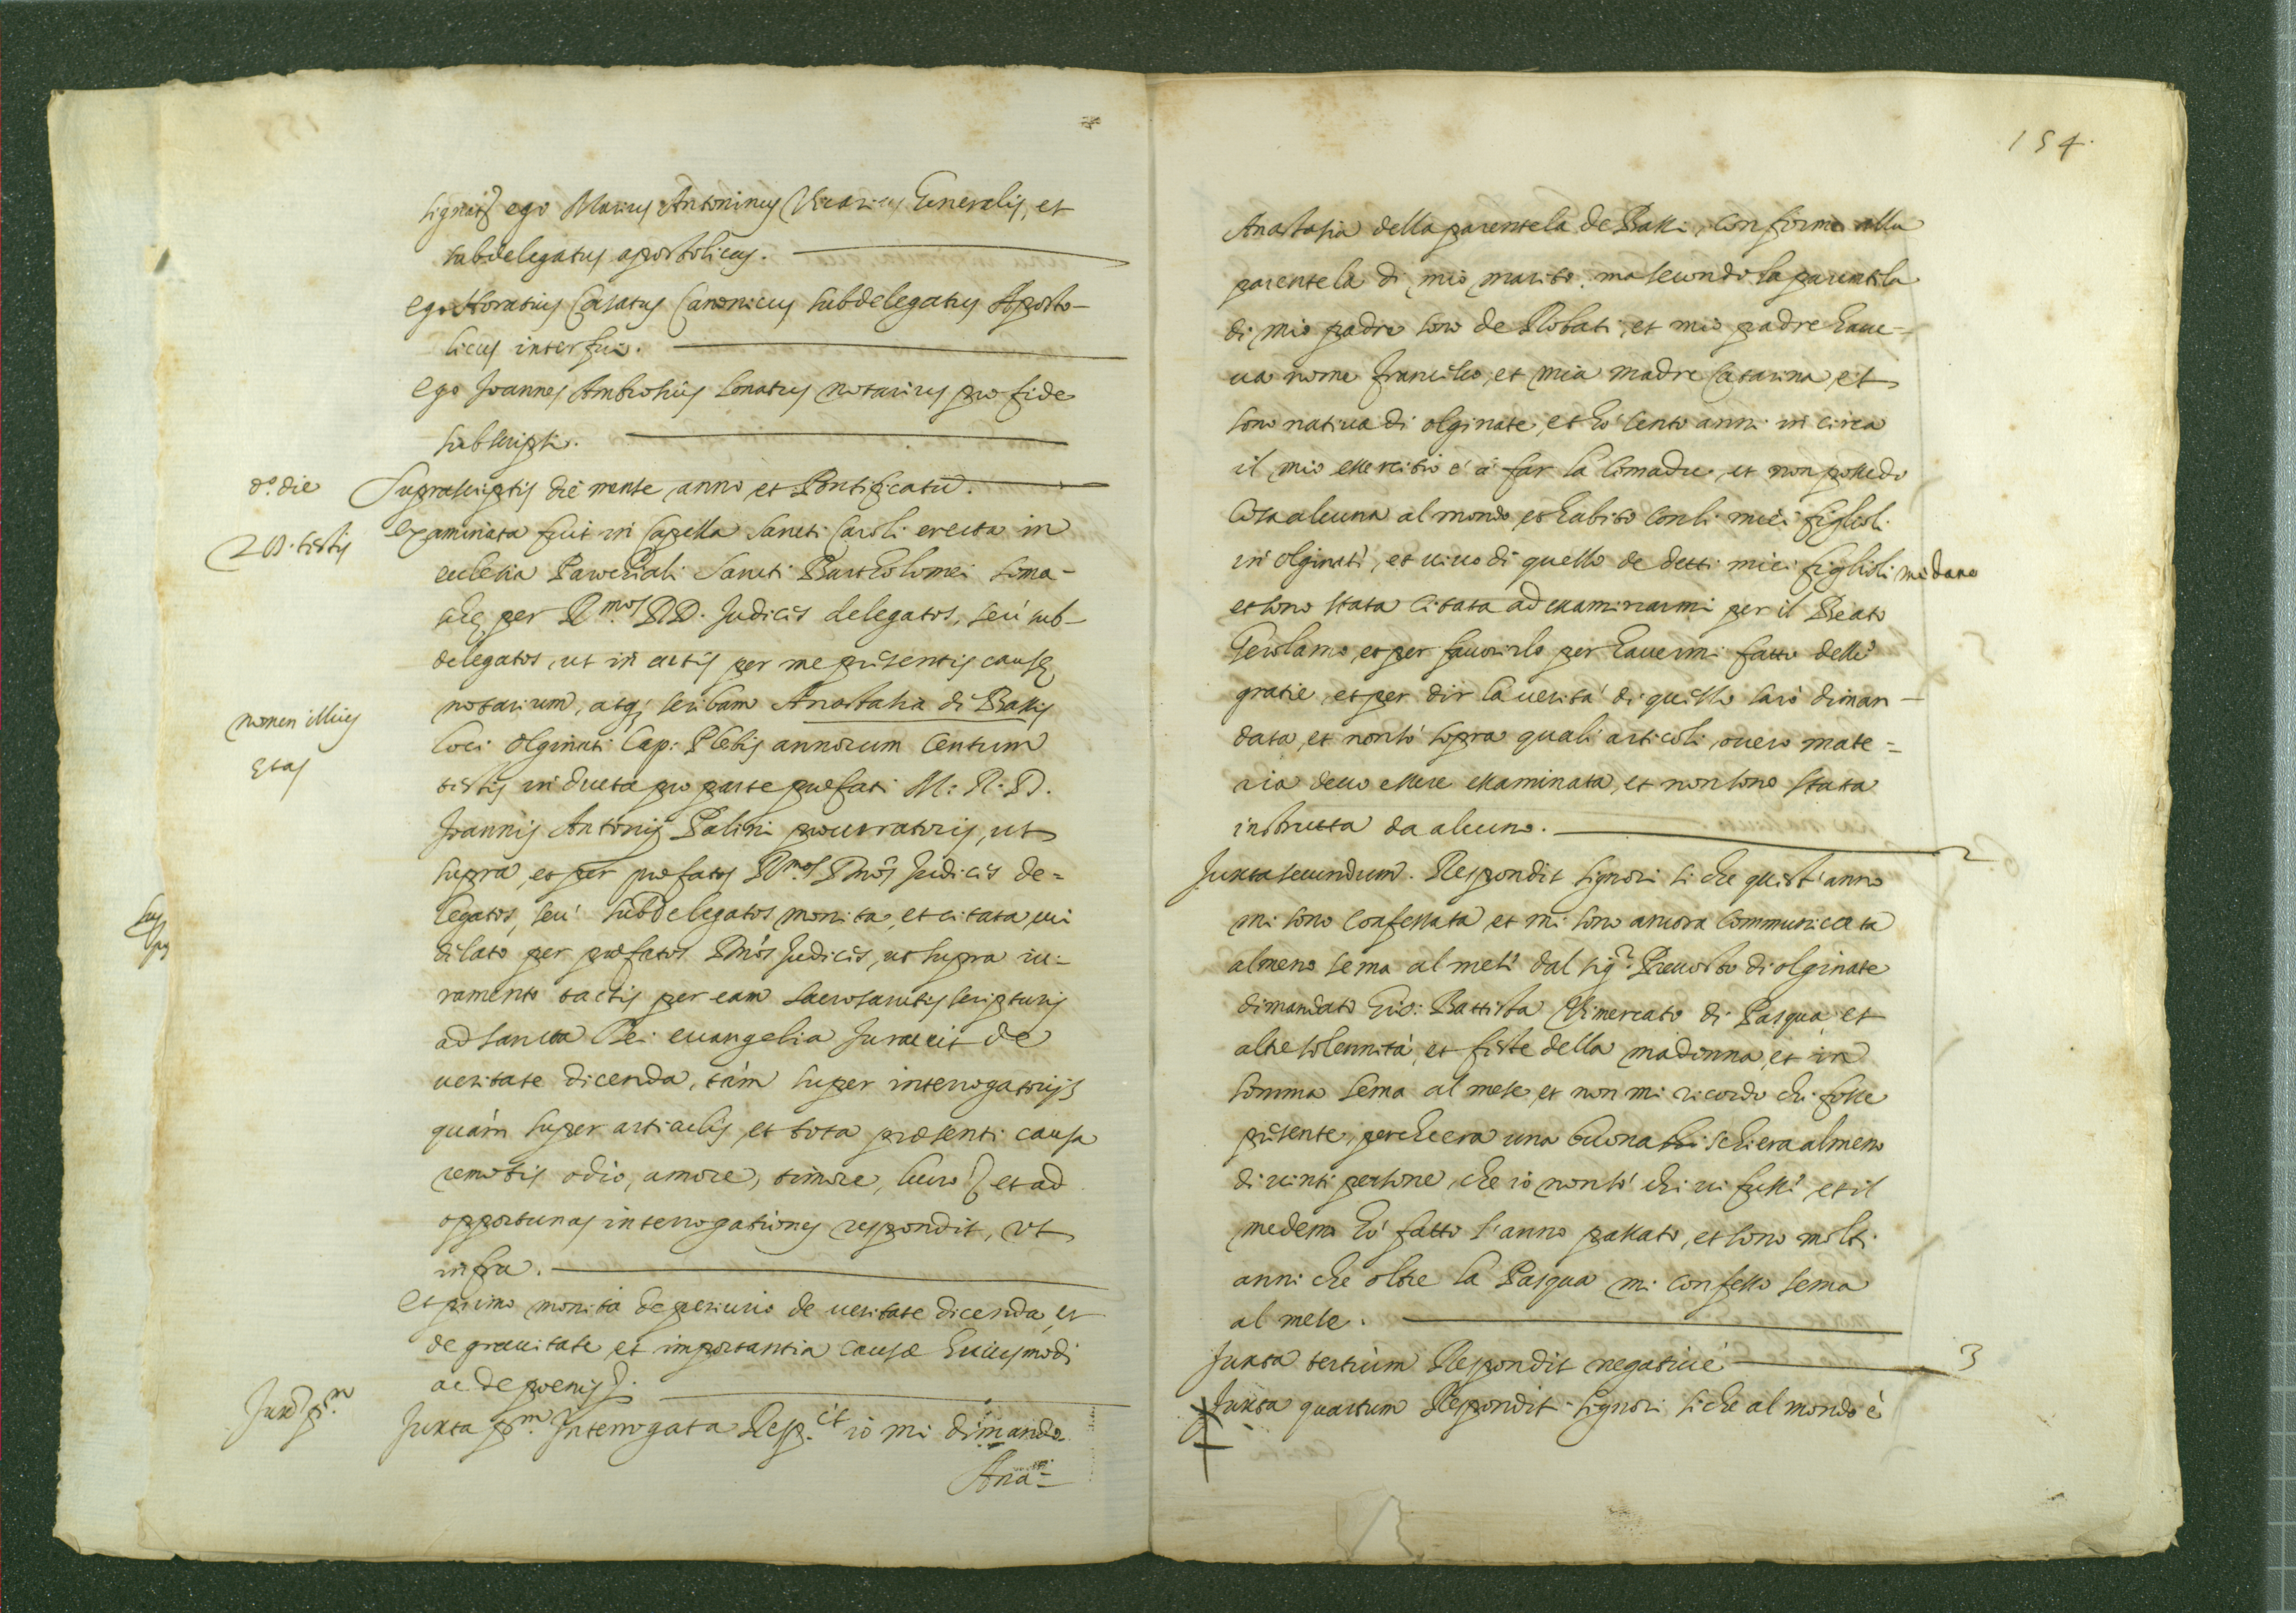 signatis ego Marius Antoninus Vicarius Generalis, et
subdelegatus apostolicus.
ego Horatius Casatus Canonicus subdelegatus Aposto-
licus interfui.
ego Joannes Ambrosius Lonatus notarius pro fide
subscripsi.
d.º die
Suprascriptis die mense anno et Pontificatu.
20. testis
examinata fuit in Capella Sancti Caroli erecta in
ecclesia Parochiali Sancti Bartholomei Soma-
schę per R.mos DD. Judices delegatos, seù sub-
delegatos, ut in actis per me pñsentis causę
nomen illius
notarium, atq; scribam Anastasia di Bassis
loci Olginati Cap: Plebis annorum Centum
ętas
testis inducta pro parte præfati M: R: D.
Joannis Antonij Palini procuratoris, ut
supra, et per præfatos R.mos Dnõs Judices de=
legatos, seù subdelegatos monita, et citata, cui
delato per præfatos Dnõs Judices, ut supra iu-
ramento tactis per eam sacrosanctis scripturis
ad sancta Dei euangelia Jurauit de
ueritate dicenda, tàm super interrogatorijs
quàm super articulis, et tota præsenti causa
remotis odio, amore, timore, lucro et ad
opportunas interrogationes respondit, vt
infra.
et primo monita de periurio de ueritate dicenda, et
de grauitate et importantia causæ huiusmodi
ac de poenis
Juxa p.m
Juxta p.m Interrogata Resp.it io mi dimando
Ana=
154.
Anastasia della parentela de Bassi, conforme alla
parentela di mio marito, ma secondo la parentela
di mio padre sono de Robati, et mio padre haue-
ua nome Francesco, et mia madre Catarina, et
sono natiua di olginate, et hò cento anni in circa
il mio essercitio è à far la Comadre, et non possedo
cosa alcuna al mondo et habito con li miei figlioli
in Olginati, et uiuo di quello de detti miei figlioli mi dano
et sono stata citata ad essaminarmi per il Beato
Gerolamo, et per fauorirlo per hauermi fatto delle
gratie, et per dir la uerità di quello sarò diman-
data, et non sò sopra quali articoli, ouero mate=
ria deuo essere essaminata, et non sono stata
instrutta da alcuno.
Juxta secundum. Respondit Signori si che quest'anno
mi sono confessata et mi sono ancora communicata
almeno sema al mese dal sig.r Preuosto di olginate
dimandato Gio: Battista Vimercato di Pasqua et
altre solennità, et feste della madonna, et in
somma sema al mese, et non mi ricordo chi fosse
pñsente, perche era una buona schiera almeno
di uinti persone, che io non sò chi ui fusse, et il
medemo hò fatto l'anno passato, et sono molti
anni che oltre la Pasqua mi confesso sema
al mese.
Juxta tertium Respondit negatiuè 3
Juxta quartum Respondit Signori si che al mondo è